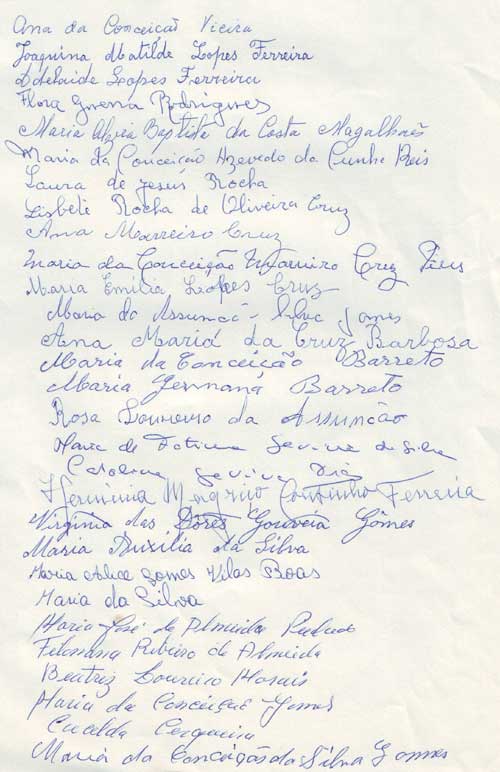 Ana da Conceição Vieira
Joaquina Matilde Lopes Ferreira
Adelaide Lopes Ferreira
Flora Guerra Rodrigues
Maria Alzira Baptista da Costa Magalhães
Maria da Conceição Azevedo da Cunha Reis
Laura de Jesus Rocha
Lisbete Rocha de Oliveira Cruz
Ana Marreiro Cruz
Maria da Conceição Cruz
Maria Emilia Lopes Cruz
Maria da Assunção Silva Gomes
Ana Maria da Cruz Barbosa
Maria da Conceição Barreto
Maria Germana Barreto
Rosa Loureiro da Assunção
Maria de Fatima da Silva
Carolina
Herminia Coutinho Ferreira
Virginia das Dores Gouveia Gomes
Maria Auxilia da Silva
Maria Alice Gomes Vilas Boas
Maria da Silva
Maria José de Almeida
Filomena Ribeiro de Almeida
Beatriz Loureiro Morais
Maria da Conceição Gomes
Cerqueira
Maria da Conceição da Silva Gomes